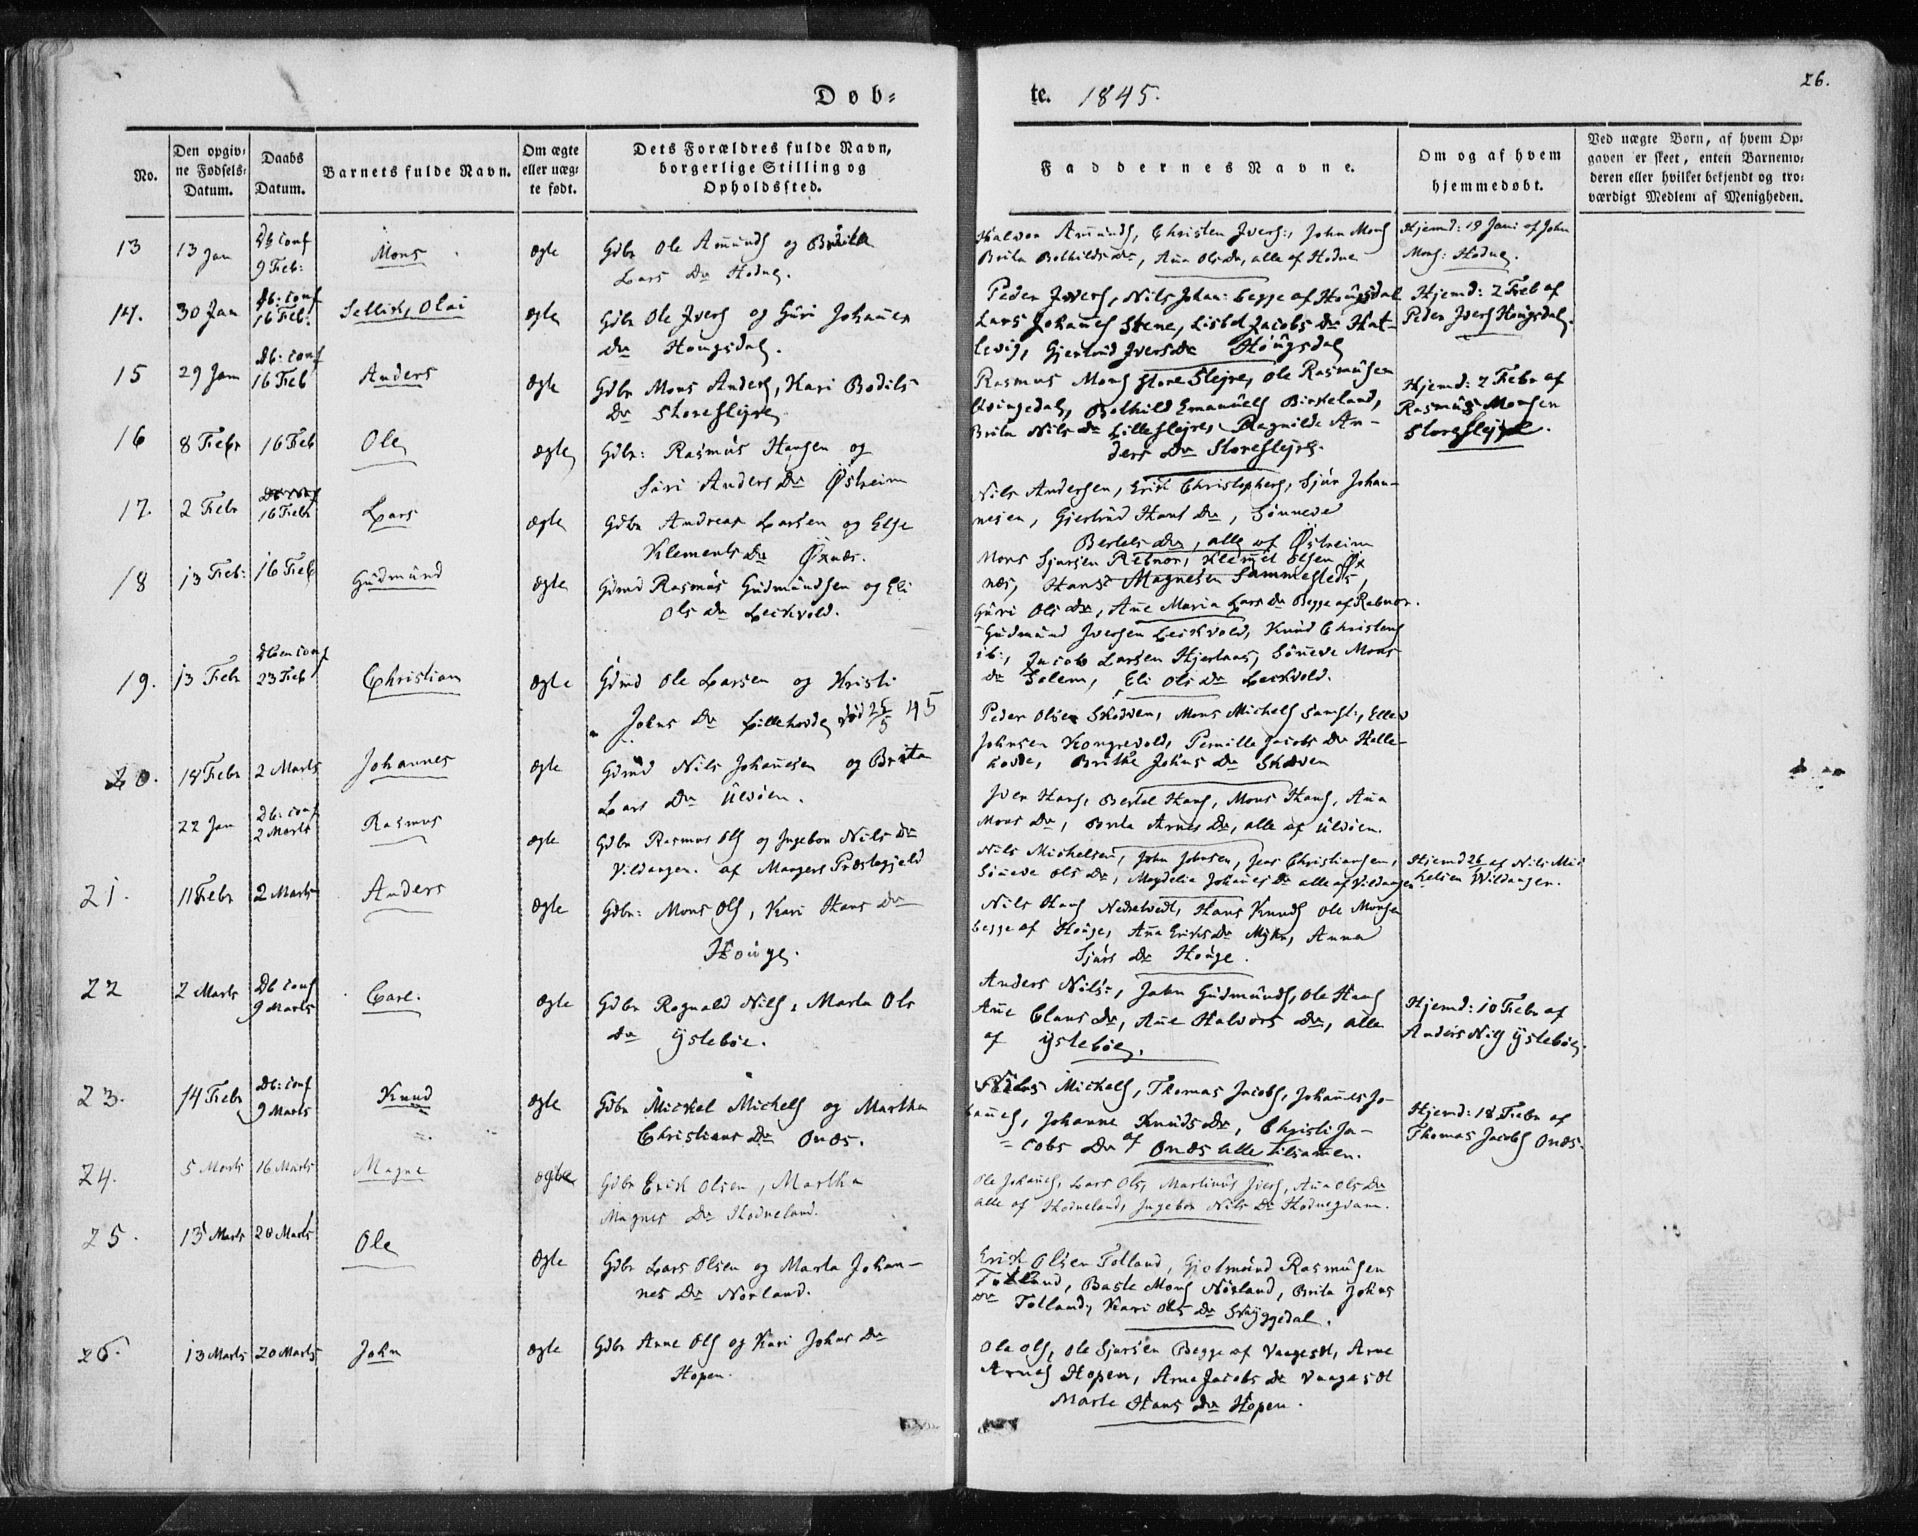 Døb=
te. 1845.
26.
No.
Den opgiv=
ne Fødsels=
Datum.
Daabs
Datum.
Barnets fulde Navn.
Om ægte
eller uæg=
te født.
Dets Forældres fulde Navn,
borgerlige Stilling og
Opholdssted.
Faddernes Navne.
Om og af hvem
hjemmedøbt.
Ved uægte Børn, af hvem Op=
gaven er skeet, enten Barnemo=
deren eller hvilket bekjendt og tro=
værdigt Medlem af Menigheden.
13
13 Jan
Db conf
9 Feb:
Mons
ægte
Gdbr Ole Amunds og Brita
Lars Dr Hodne.
Halvor Amunds, Christen Ivers:, John Mons
Brita Bothilds Dr, Ana Ols Dr, alle af Hodne
Hjemd: 19 Jani af John
Mons: Hodne.
14.
30 Jan
Db: conf
16 Feb:
Sellik, Olai
ægte
Gdbr Ole Ivers og Guri Johannes
Dr Hougsdal.
Peder Ivers, Nils Johan: begge af Hougsdal
Lars Johanes Stene, Lisbet Jacobs Dr Hat-
levig, Gjertrud Ivers Dr Hougsdal
Hjemd: 2 Feb af
Peder Ivers Hougsdal.
15
29 Jan
Db: conf
16 Feb
Anders
ægte
Gdbr Mons Anders, Kari Bodils
Dr Storeslejre
Rasmus Mons Store Slejre, Ole Rasmusen
Qvingedal, Bothild Emanuels Birkeland,
Brita Nils Dr Lilleslejre, Ragnilde An-
ders Dr Storeslejre.
Hjemd: 2 Febr af
Rasmus Monsen
Storeslejre.
16
8 Febr
16 Feb
Ole
ægte
Gdbr: Rasmus Hansen og
Siri Anders Dr Østreim
Nils Andersen, Erik Christophers, Sjur Johan-
nesen, Gjertrud Hans Dr, Sønneve
Bertels Dr, alle af Østreim
17.
2 Febr
Db conf
16 Febr
Lars
ægte
Gdbr Andreas Larsen og Else
Klements Dr Øxnæs.
Mons Sjursen Rebnor, Klemet Olsen Øx
næs, Hans Magnesen Sammesteds,
Guri Ols Dr, Ane Maria Lars Dr Begge af Rebnor.
18
13 Feb:
16 Feb
Gudmund
ægte
Gdmd Rasmus Gudmundsen og Eli
Ols Dr Leirvold.
Gudmund Iversen Leirvold, Knud Christens
ib:, Jacob Larsen Hjertaas, Sønneve Mons
Dr Solem, Eli Ols Dr Leirvold.
19.
13 Feb
Db en conf
23 Feb
Christian
ægte
Gdmd Ole Larsen og Kristi
Johns Dr Lillehovde død 25/5 45
Peder Olsen Skodven, Mons Michels Samst:, Ellev
Johnsen Kongrevold, Pernille Jacobs Dr Halle-
hovde, Brithe Johns Dr Skodven
20.
18 Febr
2 Marts
Johannes
ægte
Gdmd Nils Johanesen og Brita
Lars Dr Uldøen.
Iver Hans, Bertel Hans, Mons Hans, Ana
Mons Dr, Brita Arnes Dr, alle af Uldøen.
22 Jan
Db: conf
2 Marts
Rasmus
ægte
Gdbr Rasmus Ols og Ingebor Nils Dr
Vildangen. af Mangers Præstegjeld
Nils Michelsen, John Johnsen, Jens Christiansen,
Sineve Ols Dr, Magdelia Johanes Dr alle af Vildangen
Hjemd 26 af Nils Mi
chelsen Wildangen.
21.
11 Febr
2 Marts
Anders
ægte
Gdbr: Mons Ols, Kari Hans Dr
Houge.
Nils Hans Nedretvedt, Hans Knuds Ole Monsen
begge af Houge, Ana Eriks Dr Mykr, Anna
Sjurs Dr Houge.
22
2 Marts
Db conf
9 Marts
Carl.
ægte
Gdbr Rognald Nils, Marta Ols
Dr Ystebøe.
Anders Nils:, John Gudmunds, Ole Hans
Ane Claus Dr, Ane Halvors Dr, alle
af Ystebøe.
Hjemd: 10 Febr af
Anders Nils Ystebøe.
23.
14 Febr
Db: conf
9 Marts
Knud
ægte
Gdbr Mickel Michels og Martha
Christians Dr Onæs.
Michels, Thomas Jacobs, Johanes Jo-
hanes, Johanne Knuds Dr, Christi Ja-
cobs Dr af Onæs alle tilsamen.
Hjemd: 18 Febr af
Thomas Jacobs Onæs.
24.
5 Marts
16 Marts
Magne
ægte
Gdbr Erik Olsen, Martha
Magnes Dr Hodneland.
Ole Johanes, Lars Ols, Martinus Ivers, Ana Ols Dr
alle af Hodneland, Ingebor Nils Dr Hodnegdam.
25.
13 Marts
20 Marts
Ole
ægte
Gdbr Lars Olsen og Marta Johan-
nes Dr Norland.
Erik Olsen Totland, Gjelmund Rasmusen
Totland, Baste Mons Norland, Brita Johns
Dr Totland, Kari Ols Dr Skyggedal.
26.
13 Marts
20 Marts
John
ægte
Gdbr Arne Ols og Kari Johns Dr
Hopen.
Ole Ols, Ole Sjursen Begge af Vaageset, Arne
Arnes Hopen, Arna Jacobs Dr Vaageset
Marte Hans Dr Hopen.